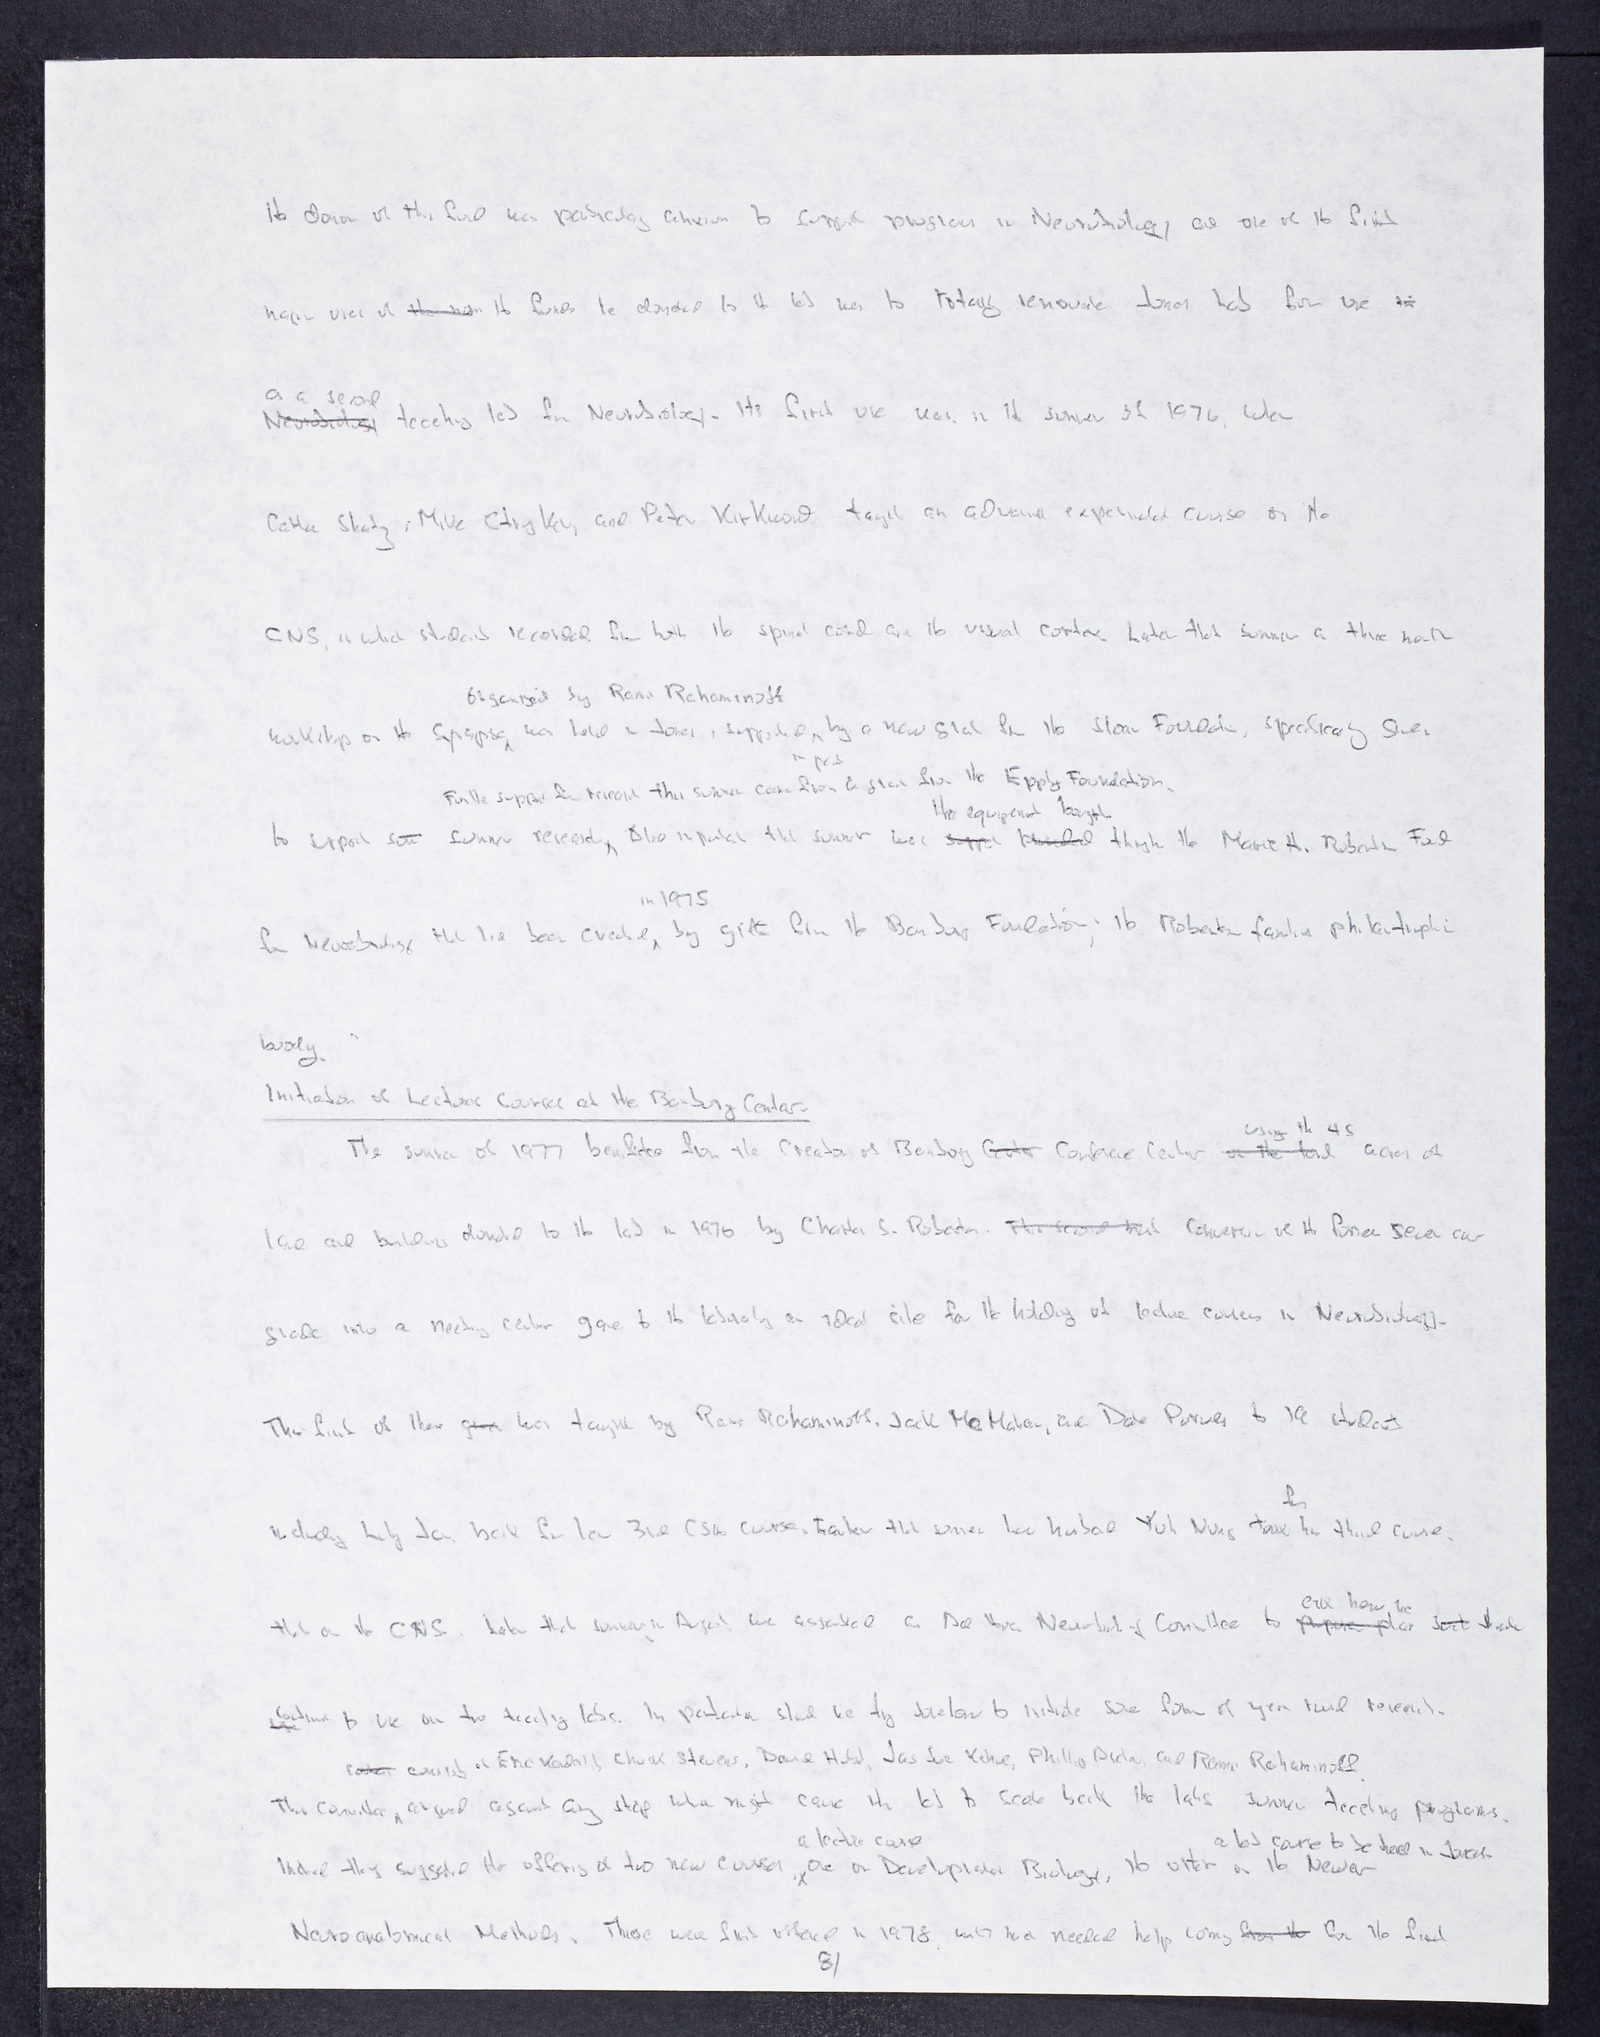 The donor of this fund was particularly anxious to support programs in Neurobiology and one of the first
major uses of the funds he donated to the lab was to totally renovate Jones Lab for use
as a second
Neurobiology teaching lab for Neurobiology. Its first use was in the summer of 1976, when
Carla Shatz, Mike Stryker, and Peter Kirkwood taught an advanced experimental course on the
CNS, in which students recorded from both the spinal cord and the visual cortex. Later that summer a three month
organized by Rami Rahaminoff
workshop on the Synapse was held in Jones, supported by a new grant from the Sloan Foundation, specifically given
in part
Further support for research this summer came from a grant from the Eppley Foundation.
the equipment bought
to support some summer research. Also important that summer was through the Marie H. Robertson Fund
in 1975
for Neurobiology that had been created by gifts from the Banbury Foundation, the Robertson families philanthropic
body.
Initiation of Lecture Courses at the Banbury Center
using the 45
The summer of 1977 benefited from the creation of Banbury Center Conference Center on the land acres of
land and buildings donated to the lab in 1976 by Charles S. Robertson. The second Conversion of the former seven car
garage into a meeting center gave to the laboratory an ideal site for the holding of lecture courses in Neurobiology.
The first of these was taught by Rami Rahaminoff, Jack McMahan, and Dale Purves to 19 students
for
including Lily Jan, back for her 3rd CSH course. Earlier that summer her husband Yuh Nung took his third course,
that on the CNS. Later that summer in August we assembled an Neurobiology Committee to prepare plan
continue to use our two teaching labs. In particular should we try to initiate some form of year round research.
consisting of Eric Kandel, Chuck Stevens, David Hubel, and Rami Rahaminoff
This Committee, argued against any step which might cause the lab to scale back the labs summer teaching programs.
a lecture course
a lab course to be held in Jones
Instead they suggested the offering of two new courses, one on Developmental Biology, the other on the Newer
Neuroanatomical Methods. These were first offered in 1978 with much needed help coming from the for the first
81